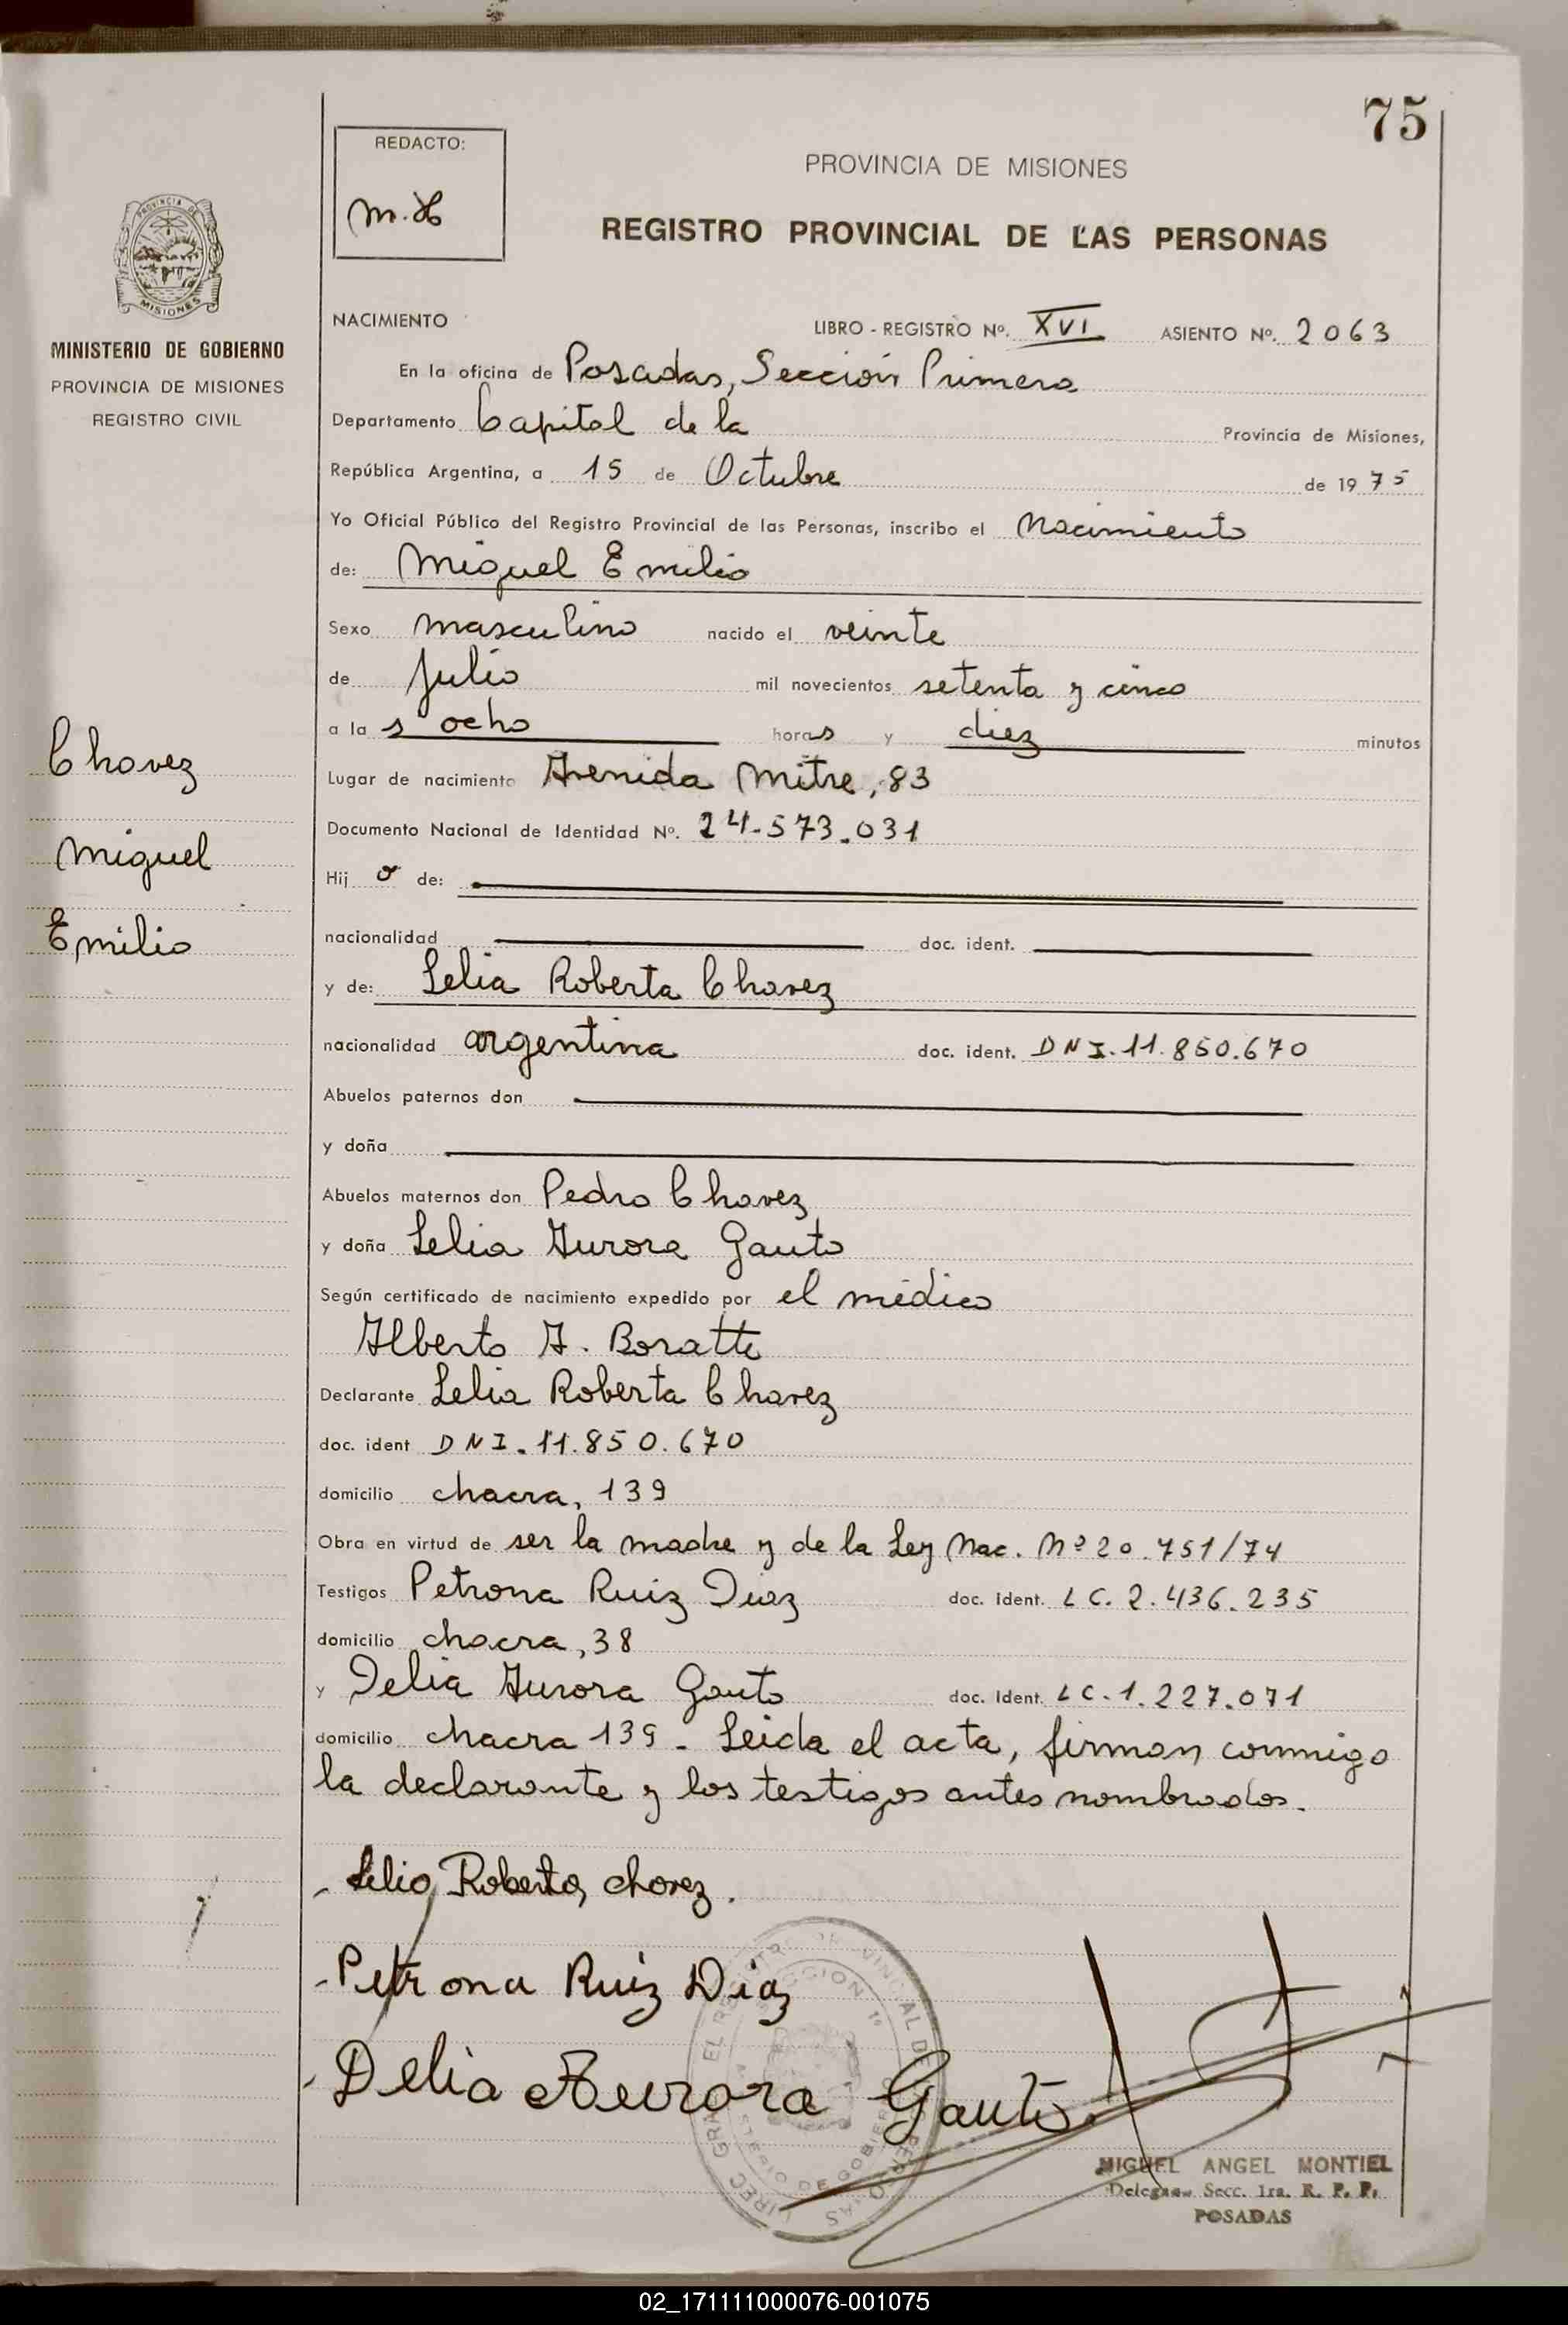 75
REDACTO:
m.H
PROVINCIA DE MISIONES
REGISTRO PROVINCIAL DE LAS PERSONAS
PROVINCIA DE
MISIONES
MINISTERIO DE GOBIERNO
PROVINCIA DE MISIONES
REGISTRO CIVIL
Chavez
Miguel
Emilio
NACIMIENTO LIBRO - REGISTRO Nº. XVI ASIENTO Nº. 2063
En la oficina de Posadas, Sección Primera
Departamento Capital de la Provincia de Misiones,
República Argentina, a 15 de Octubre de 1975
Yo Oficial Público del Registro Provincial de las Personas, inscribo el Nacimiento
de: Miguel Emilio
Sexo masculino nacido el veinte
de Julio mil novecientos setenta y cinco
a las ocho horas y diez minutos
Lugar de nacimiento Avenida Mitre, 83
Documento Nacional de Identidad Nº. 24.573.031
Hijo de:
nacionalidad doc. ident.
y de: Lelia Roberta Chavez
nacionalidad argentina doc. ident. DNI.11.850.670
Abuelos paternos don
y doña
Abuelos maternos don Pedro Chavez
y doña Lelia Aurora Gauto
Según certificado de nacimiento expedido por el médico
Alberto A. Boratti
Declarante Lelia Roberta Chavez
doc. ident DNI.11.850.670
domicilio chacra, 139
Obra en virtud de ser la madre y de la Ley Nac. Nº 20.751/74
Testigos Petrona Ruiz Diaz doc. Ident. LC.2.436.235
domicilio chacra, 38
y Delia Aurora Gauto doc. Ident. LC.1.227.071
domicilio chacra 139 - Leida el acta, firman conmigo
la declarante y los testigos antes nombrados.
Lelia Roberta, chavez.
-Petrona Ruiz Diaz
-Delia Aurora Gauto.
MIGUEL ANGEL MONTIEL
Delegado Secc. 1ra. R. P. P.
POSADAS
02_171111000076-001075